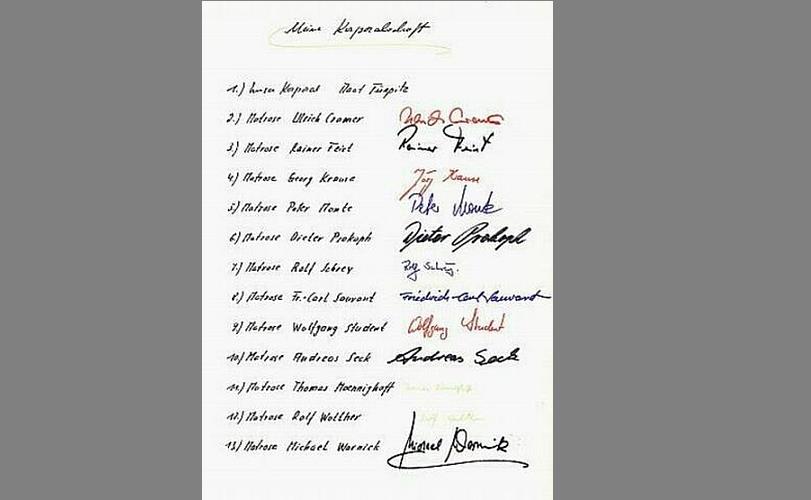 Meine Korporalschaft
1.) Unser Korporal Maat Turpitz
2.) Matrose Ulrich Cramer
3.) Matrose Rainer Feist Rainer Feist
4.) Matrose Georg Krause Krause
5.) Matrose Peter Monte Peter
6.) Matrose Dieter Prokoph Dieter Prokoph
7.) Matrose Rolf Schrey Rolf Schrey
8.) Matrose Fr.-Carl Sauvant Friedrich-Carl Sauvant
9.) Matrose Wolfgang Student Wolfgang Student
10.) Matrose Andreas Seck Andreas Seck
11.) Matrose Thomas Moennighoff
12.) Matrose Rolf Walther
13.) Matrose Michael Warnick Michael Warnick